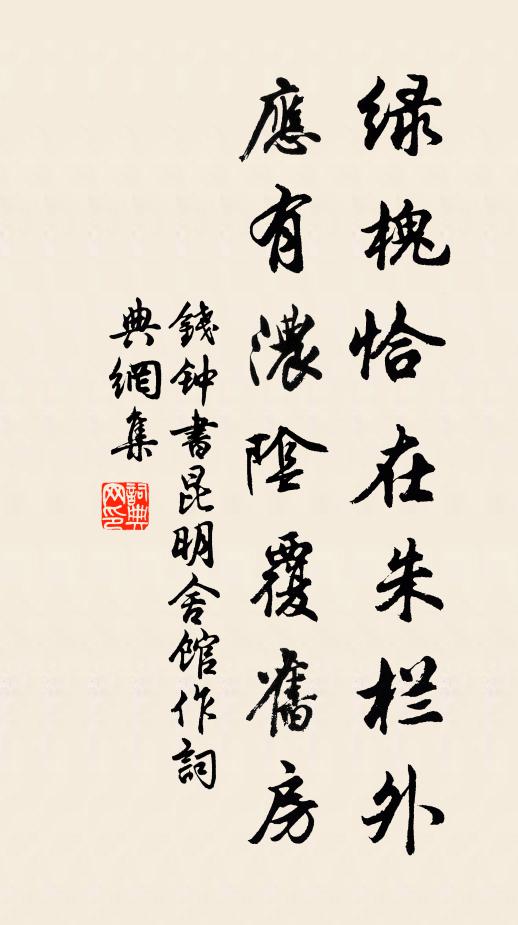 绿槐恰在朱栏外
應有濃陰覆舊房
錢钟書昆明舍館作詞
典網集
詞典网印